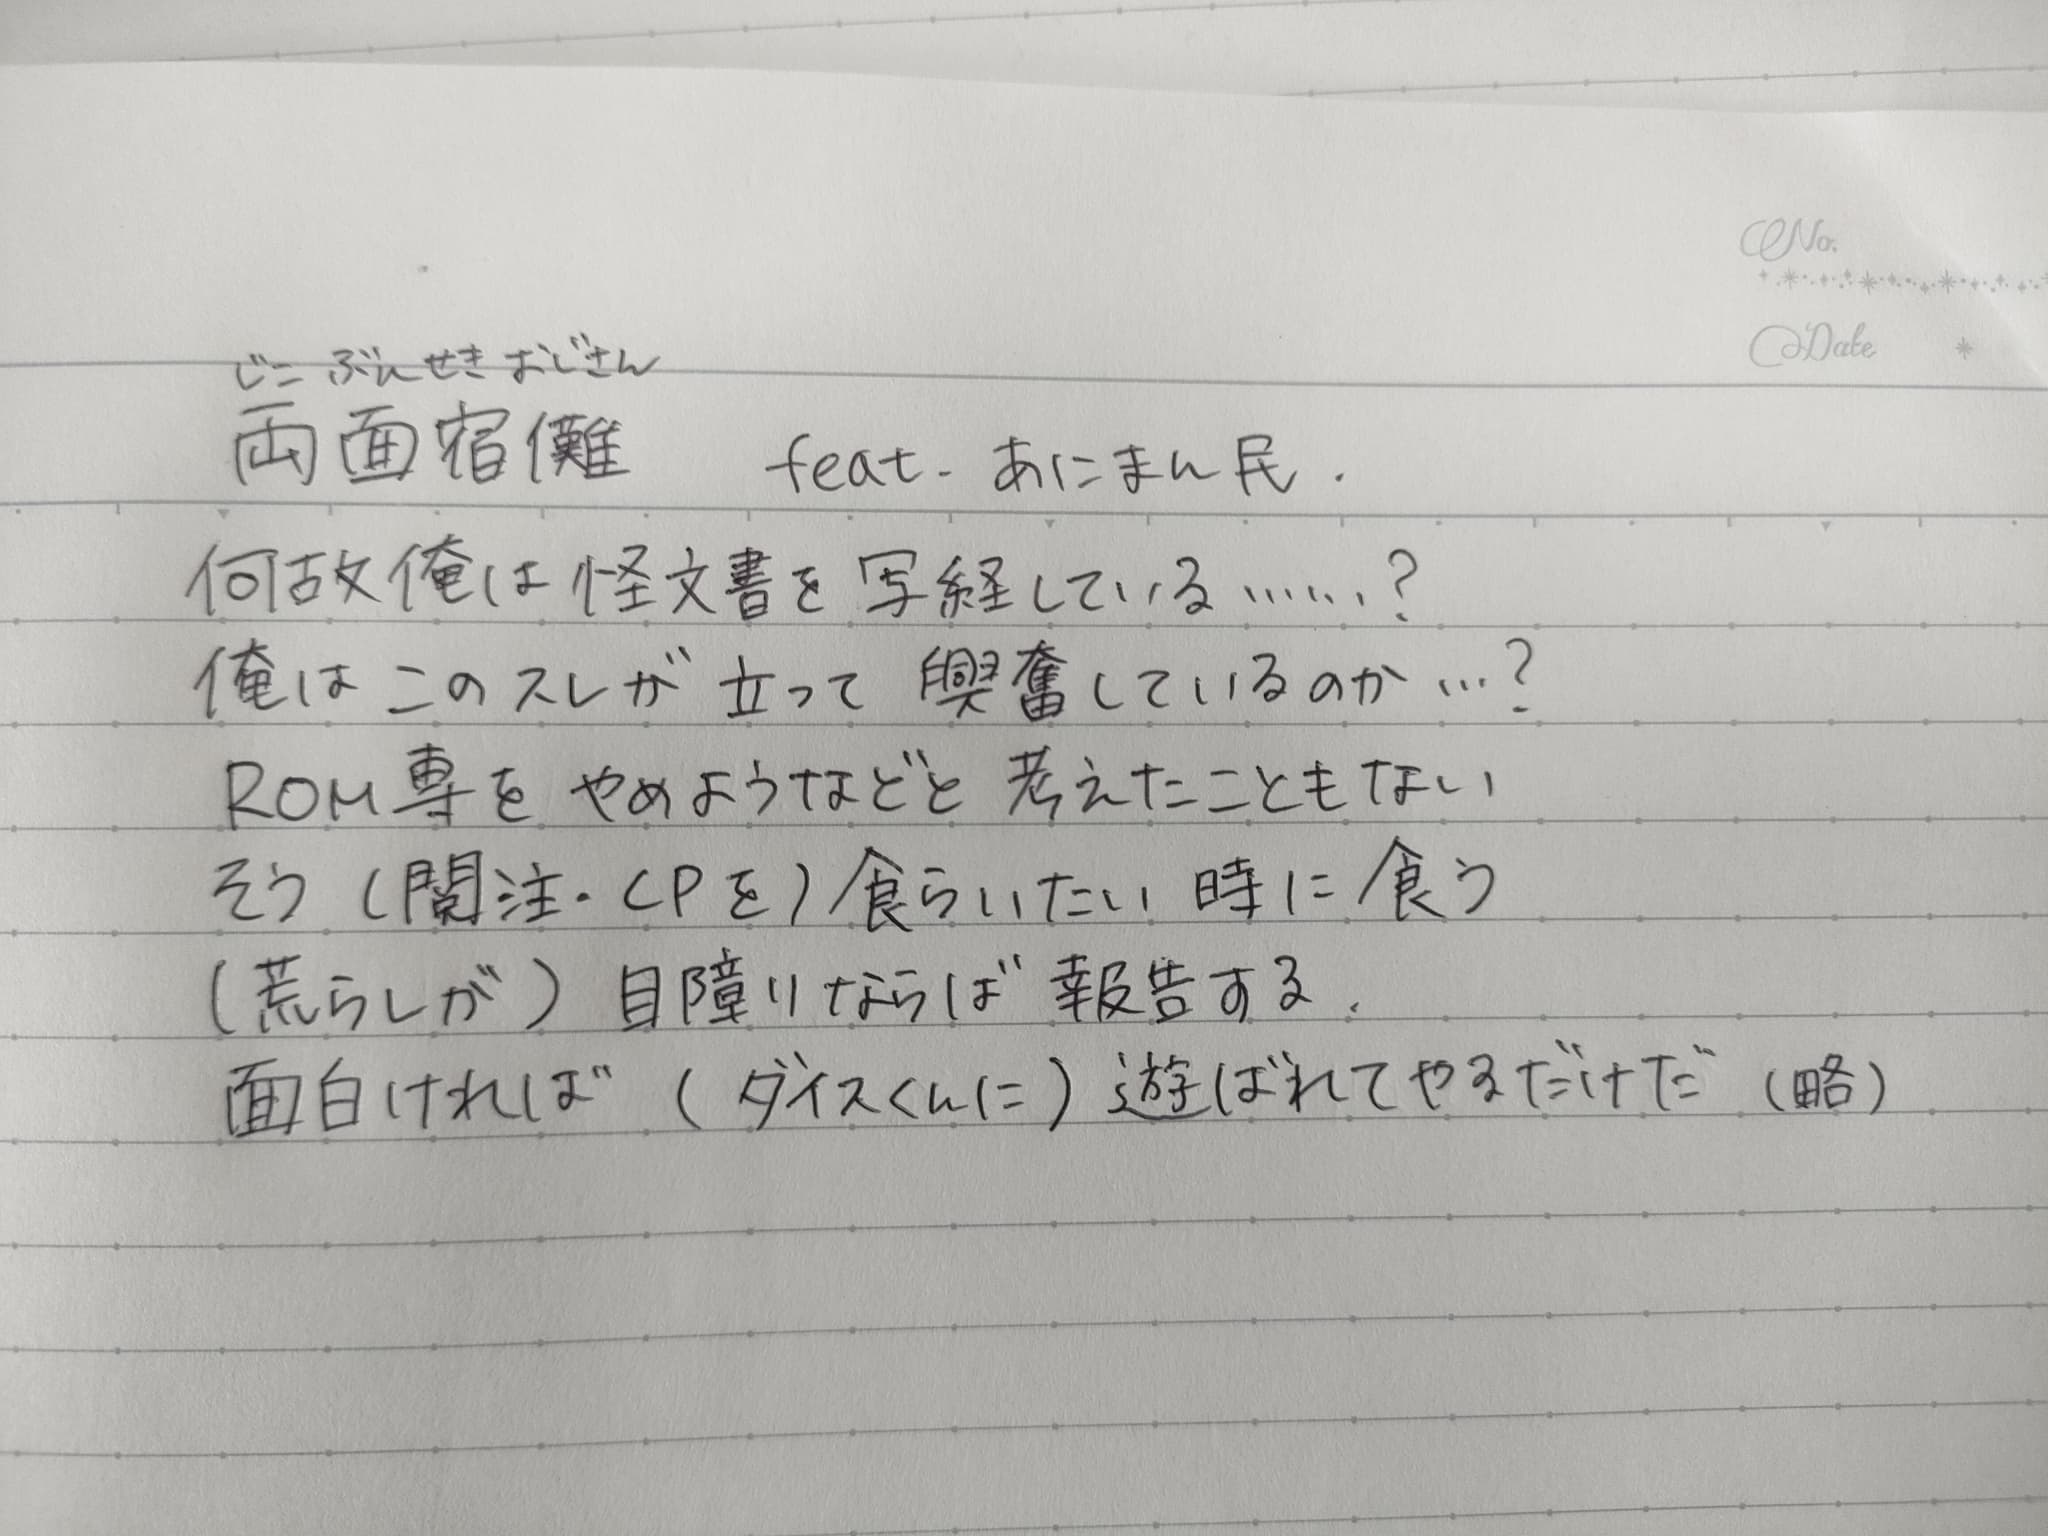 No.
Date
じこぶんせきおじさん
両面宿儺 feat. あにまん民.
何故俺は怪文書を写経している……?
俺はこのスレが立って興奮しているのか…?
ROM専をやめようなどと考えたこともない
そう(閲注・CPを)食らいたい時に食う
(荒らしが)目障りならば報告する.
面白ければ(ダイスくんに)遊ばれてやるだけだ(略)